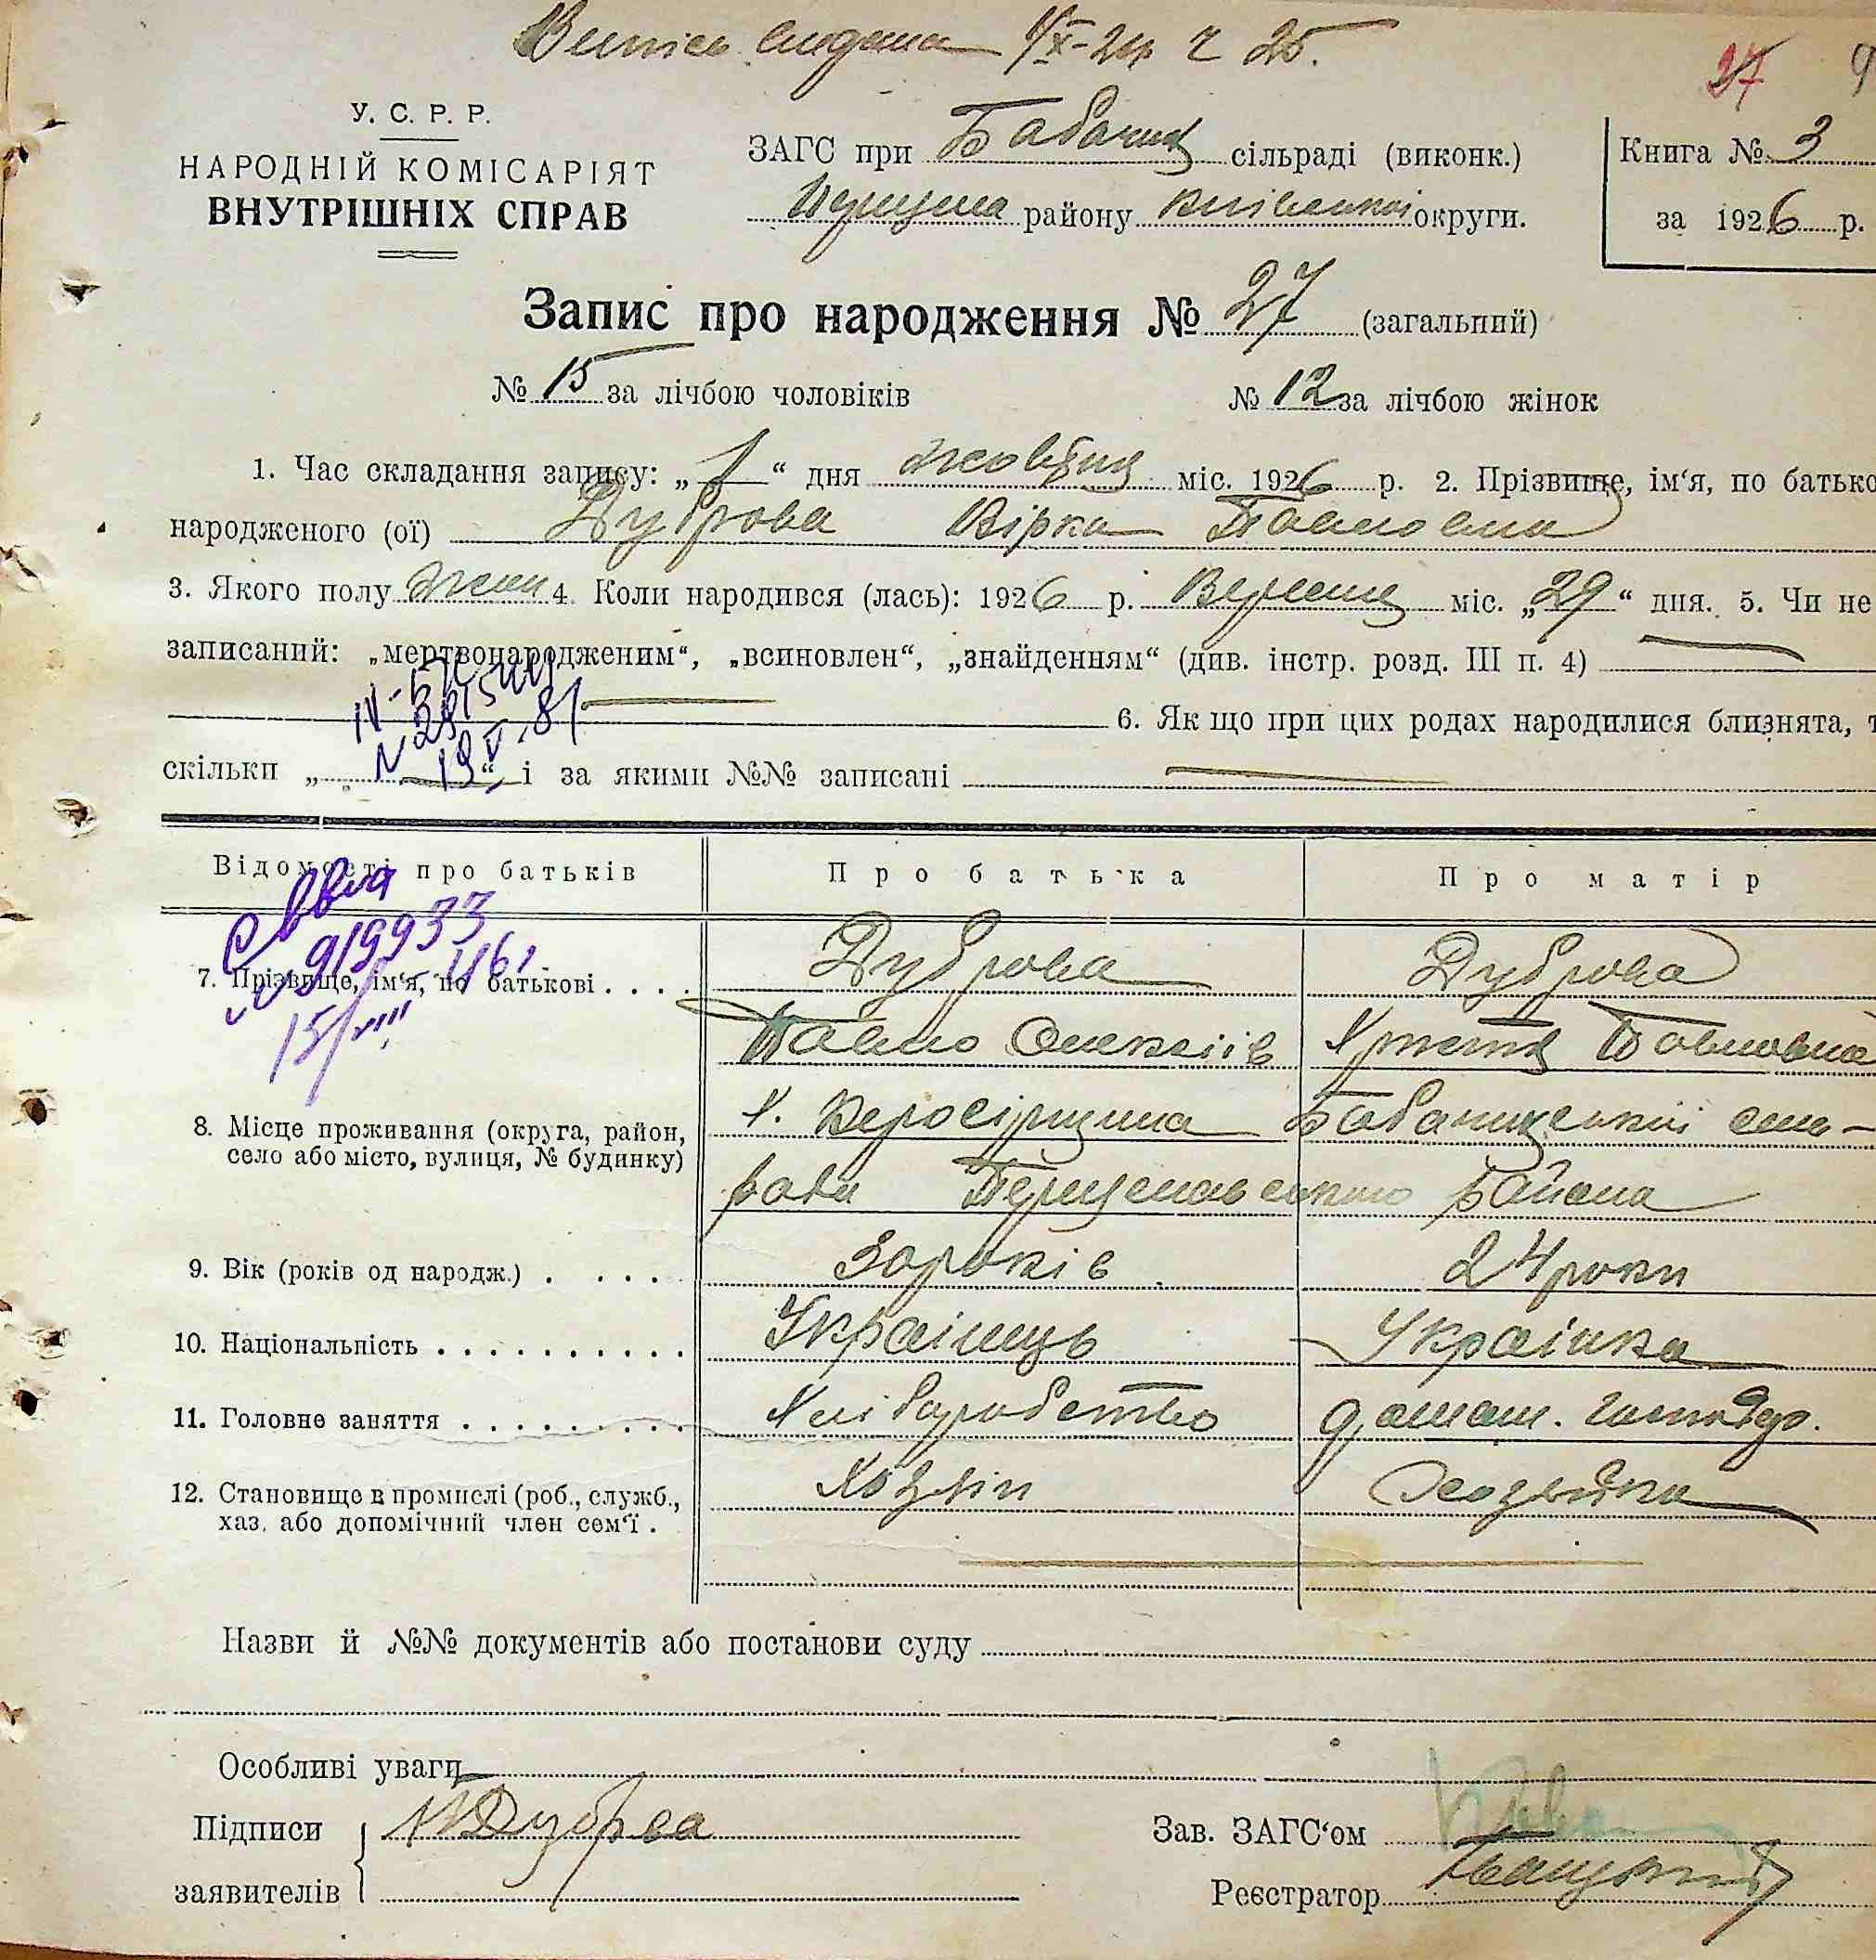 Випись видана
27
У. С. Р. Р.
НАРОДНІЙ КОМІСАРІЯТ
ВНУТРІШНІХ СПРАВ
ЗАГС при сільраді (виконк.)
району Київської округи.
Книга №. 3
за 1926 р.
Запис про народження № 27 (загальний)
№ 15 за лічбою чоловіків № 12 за лічбою жінок
1. Час складання запису: „1“ дня жовтня міс. 1926 р. 2. Прізвище, ім‘я, по батько
народженого (ої) Дуброва Вірка Павловна
3. Якого полу жен 4. Коли народився (лась): 1926 р. Вересня міс. „29“ дня. 5. Чи не
записаний: „мертвонародженим“, „всиновлен“, „знайденням“ (див. інстр. розд. III п. 4)
6. Як що при цих родах народилися близнята, т
скільки „ “ і за якими №№ записані
19 V. 81
Відомості про батьків Про батька Про матір
919933
7. Прізвище, ім‘я, по батькові . . . . Дуброва Дуброва
Павло Олексіїв Христя Павловна
15/VIII
8. Місце проживання (округа, район,
село або місто, вулиця, № будинку)
х. Бабаницької сель-
ради района
9. Вік (років од народж.) . . . . . 30 років 24 роки
10. Національність . . . . . . . . . . Українець Українка
11. Головне заняття . . . . . . . . . Хліборобство домаш. господар.
12. Становище в промислі (роб., служб.,
хаз. або допомічний член сем‘ї . Хозяїн Хозяйка
Назви й №№ документів або постанови суду
Особливі уваги
Підписи
заявителів
Зав. ЗАГС‘ом
Реєстратор